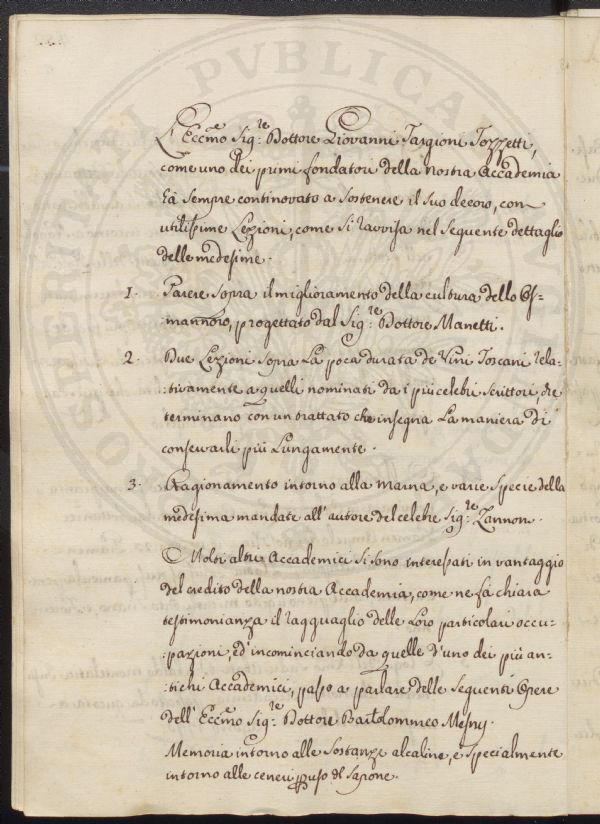 L'Eccmo Sig:re Dottore Giovanni Targioni Tozzetti,
come uno dei primi fondatori della nostra Accademia
hà sempre continovato a sostenere il suo decoro, con
utilissime Lezioni, come si ravvisa nel seguente dettaglio
delle medesime.
1. Parere sopra il miglioramento della cultura dello Os-
mannoro, progettato dal Sig:re Dottore Manetti.
2. Due Lezioni sopra La poca durata de Vini Toscani rela-
:tivamente a quelli nominati da i più celebri scrittori, che
terminano con un trattato che insegna La maniera di
conservarli più Lungamente.
3. Ragionamento intorno alla marna, e varie specie della
medesima mandate all'autore del celebre Sig:re Zannon.
Molti altri Accademici si sono interessati in vantaggio
del credito della nostra Accademia, come ne fà chiara
testimonianza il ragguaglio delle Loro particolari occu-
:pazioni, ed incominciando da quelle d'uno dei più an-
:tichi Accademici, passo a parlare delle seguenti Opere
dell'Eccmo Sig:re Dottore Bartolommeo Mesny.
Memoria intorno alle Sostanze alcaline, e specialmente
intorno alle ceneri uso di Sapone.
PVBLICAE
PROSPERITATI